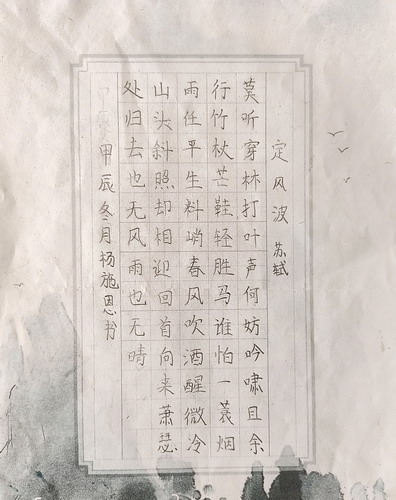 定风波 苏轼
莫听穿林打叶声何妨吟啸且余
行竹杖芒鞋轻胜马谁怕一蓑烟
雨任平生料峭春风吹酒醒微冷
山头斜照却相迎回首向来萧瑟
处归去也无风雨也无晴
甲辰冬月杨施恩书